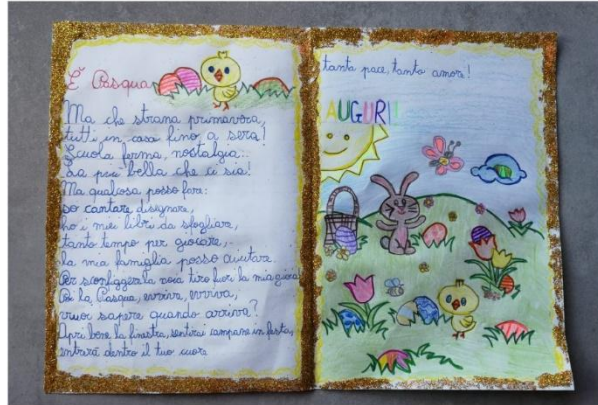 È Pasqua
Ma che strana primavera,
tutti in casa fino a sera!
Scuola ferma, nostalgia...
La più bella che ci sia!
Ma qualcosa posso fare:
so cantare, disegnare,
ho i miei libri da sfogliare,
tanto tempo per giocare,
la mia famiglia posso aiutare.
Per sconfiggere la noia tiro fuori la mia gioia
la Pasqua, evviva, evviva,
vuoi sapere quando arriva?
Apri bene la finestra, sentirai campane in festa,
entrerà dentro il tuo cuore
tanta pace, tanto amore!
AUGURI!